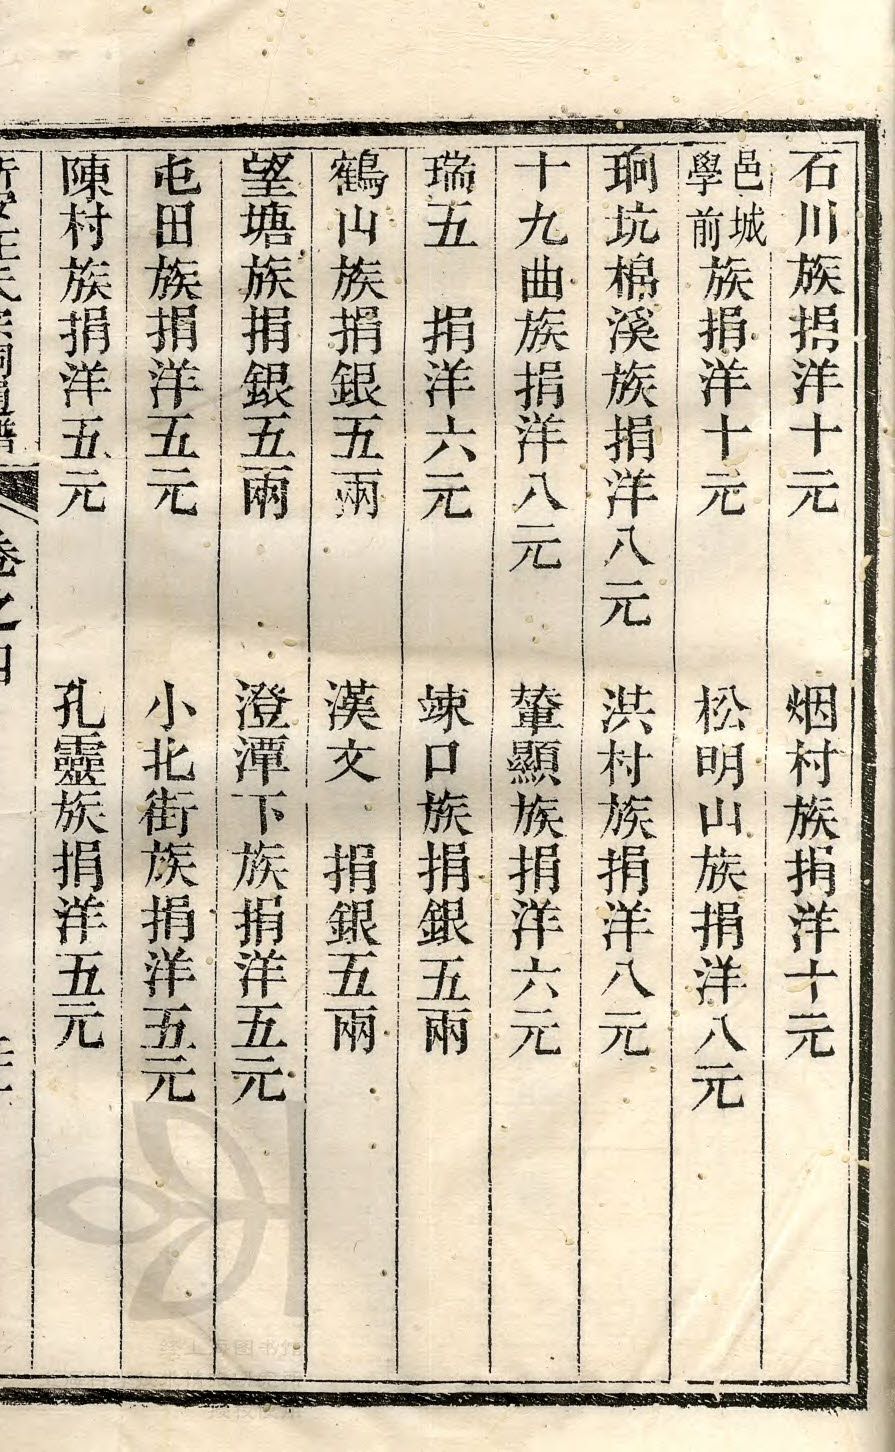 石川族捐洋十元　烟村族捐洋十元
邑城學前族捐洋十元　松明山族捐洋八元
珦坑棉溪族捐洋八元　洪村族捐洋八元
十九曲族捐洋八元　輋顯族捐洋六元
瑞五　捐洋六元　竦口族捐銀五兩
鶴山族捐銀五兩　漢文　捐銀五兩
望塘族捐銀五兩　澄潭下族捐洋五元
屯田族捐洋五元　小北街族捐洋五元
陳村族捐洋五元　孔靈族捐洋五元
卷之四